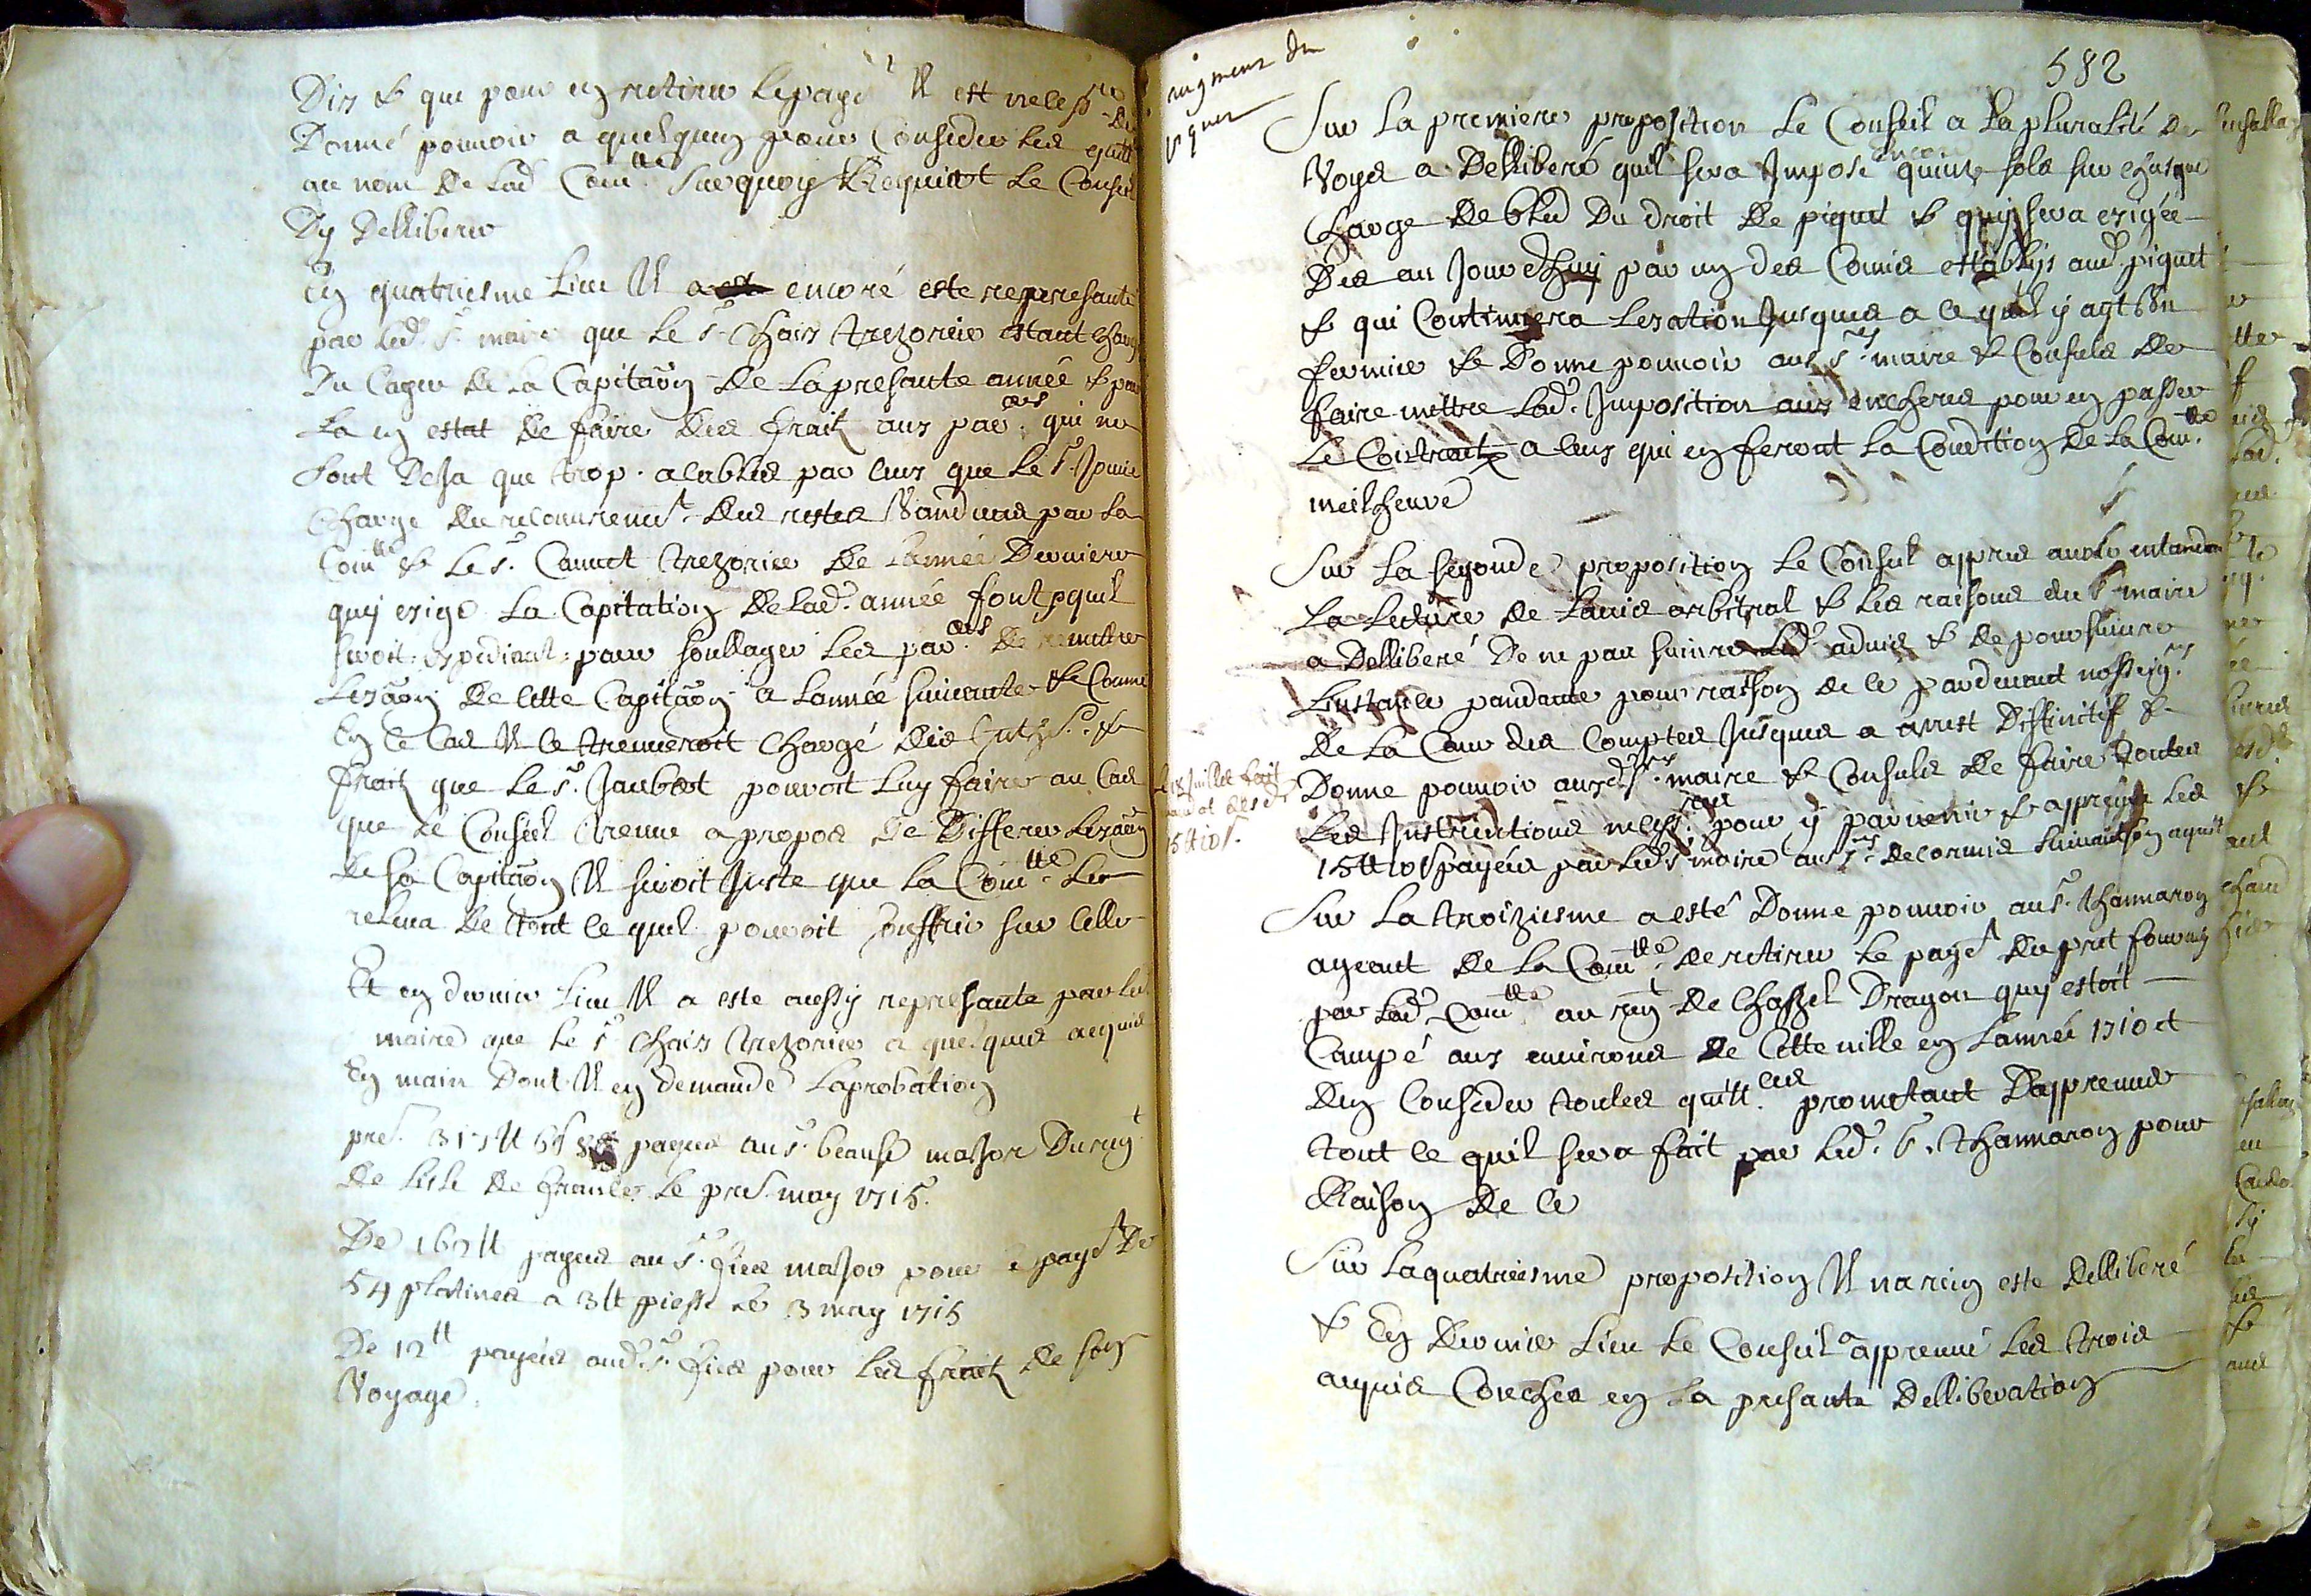 Dix & que pour en retirer le paye.t Il est necess.re de
Donné pouvoir a quelquun pour Conseder les quitt
au nom de lad Com.tté Surquoy Requirt le Conseil
Dy Delliberer
En quatriesme lieu Il a encore este represanté
par led. S.r maire que le S.r Chais trezorier estant charg
Du Cayer de la Capitaõn de la presante année & par
la en estat de faire des fraix aux par.ans qui ne
sont Desja que trop acablés par ceux que le S.r
Charge du recouvrem.t des restes Vandues par la
Com.tté & le S.r Cauvet trezorier de lannée Derniere
quy exige la Capitation de lad. année font quil
seroit expediant pour soullager les par.ans de remettre
Lexaõn de cette Capitaõn a lannée suivante & Comme
En ce Cas Il ce treuveroit chargé des &
fraix que le S.r Jaubert pouroit luy faire au Cas
que le Conseil treuve a propos de Differer Lexaõn
de sa Capitaõn Il seroit Juste que la Com.tté le
releva de tout ce quil pouroit souffrir sur celle
Et en dernier lieu Il a este aussy represante par led
maire que le S.r Chais trezorier a quelques acquis
En main Dont Il en demande laprobation
pre.t 317 ₶ 6s payés au S.r beausse major Du reg.t
de lisle de france le pre.r may 1715.
De 162 ₶ payés au S.r fies major pour le paye.t De
54 platines a 3 ₶ piesse le 3 may 1715
De 12 ₶ payées aud. S.r fies pour les fraix de son
Voyage
582
du
Sur La premiere proposition Le Conseil a la pluralité des
encore
Voyes a Delliberé quil sera Imposé quinze sols sur chasque
Charge de bled Du droit de piquet & quy sera exigée
Des au Jourdhuy par un des Comis establys aud. piquet
& qui Continuera lexation Jusques a ce quil y ayt Un
fermier & Donne pouvoir aux S.rs maire & Consuls de
faire mettre lad. Imposition aux encheres pour en passer
Le Contract a ceux qui en feront la Condition de la Com.tté
meilheure
Sur La segonde proposition le Conseil appres avoir entandeu
La Lecture de lavis arbitral & les raisons du S.r maire
a Delliberé De ne pas suivre led. advis & de poursuivre
Linstance pandante pour raison de ce pardevant nosseig.rs
de la Cour des Comptes Jusques a arrest Diffinitif &
Donne pouvoir ausd. S.rs maire & Consuls de faire toutes
Les Instructions necess.res pour y parvenir & appreuve les
15 ₶ 10 s payées par led S.r maire aux S.rs decormis suivant son aquit
juillet fait
mandat des d.
15 ₶ 10 s.
Sur La troiziesme a esté Donne pouvoir au S.r thannaron
ageant de la Com.tté de retirer le paye.t du pret fourny
par lad. Com.tté au reg.t de Chastel Dragon quy estoit
Campé aux environs de Cette ville en lannée 1710 et
den Conseder toutes quitt.ces prometant Dappreuver
tout ce quil sera fait par led. S.r thannaron pour
Raison de ce
Sur la quatriesme proposition Il na rien este delliberé
& En dernier lieu le Conseil a appreuvé les trois
acquis Couchés en la presante Delliberation